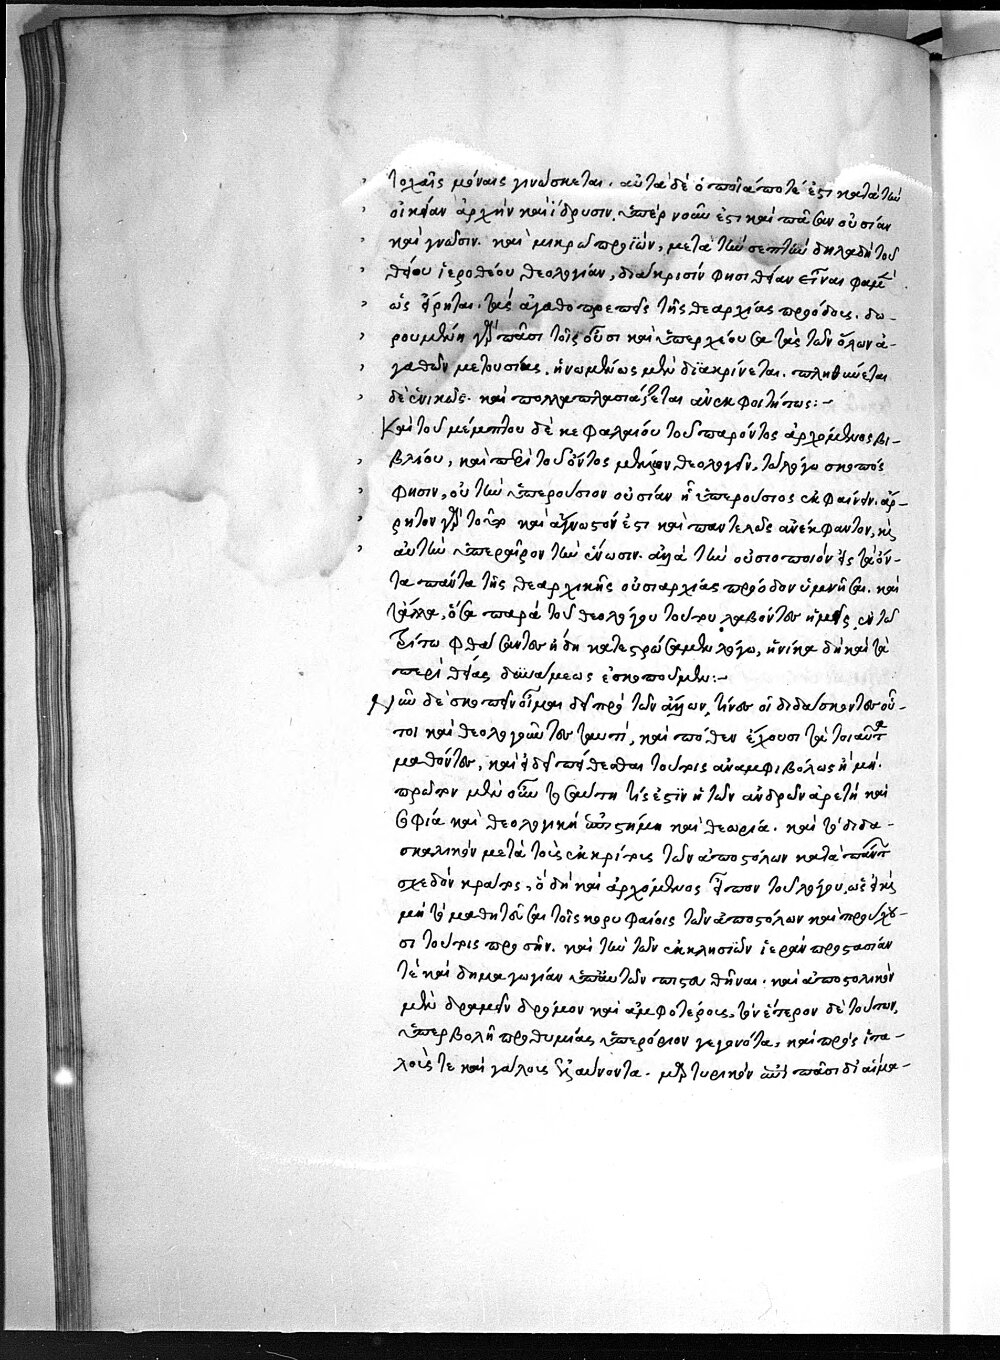 τοχαῖς μόναις γινώσκεται. αὐτὰ δὲ ὁποῖά ποτέ ἐστι κατὰ τὴν
οἰκείαν ἀρχὴν καὶ ἵδρυσιν, ὑπὲρ νοῦν ἐστι καὶ πᾶσαν οὐσίαν
καὶ γνῶσιν. καὶ μικρὸν προϊών, μετὰ τὴν σεπτὴν δηλαδὴ τοῦ
θείου ἱεροθέου θεολογίαν, διάκρισίν φησι θείαν εἶναι φαμὲν
ὡς εἴρηται, τὰς ἀγαθοπρεπεῖς τῆς θεαρχίας προόδους. δω-
ρουμένη γὰρ πᾶσι τοῖς οὖσι καὶ ὑπερχέουσα τὰς τῶν ὅλων ἀ-
γαθῶν μετουσίας, ἡνωμένως μὲν διακρίνεται. πληθύεται
δὲ ἑνικῶς. καὶ πολλαπλασιάζεται ἀνεκφοιτήτως:-
Καὶ τοῦ πέμπτου δὲ κεφαλαίου τοῦ παρόντος ἀρχόμενος βι-
βλίου, καὶ περὶ τοῦ ὄντος μέλλων θεολογεῖν, τῷ λόγῳ σκοπός
φησιν, οὐ τὴν ὑπερούσιον οὐσίαν ᾗ ὑπερούσιος ἐκφαίνειν. ἄρ-
ρητον γὰρ τοῦτο καὶ ἄγνωστόν ἐστι καὶ παντελῶς ἀνέκφαντον, καὶ
αὐτὴν ὑπεραῖρον τὴν ἕνωσιν. ἀλλὰ τὴν οὐσιοποιὸν εἰς τὰ ὄν-
τα πάντα τῆς θεαρχικῆς οὐσιαρχίας πρόοδον ὑμνῆσαι. καὶ
τἄλλα, ὅσα παρὰ τοῦ θεολόγου τούτου λαβόντες ἡμεῖς, ἐν τῷ
τρίτῳ φθάσαντες ἤδη κατεστρώσαμεν λόγῳ, ἡνίκα δὴ καὶ τὰ
περὶ θείας δυνάμεως ἐσκοποῦμεν:-
Νῦν δὲ σκοπεῖν οἶμαι δεῖ πρὸ τῶν ἄλλων, τίνες οἱ διδάσκοντες οὗ-
τοι καὶ θεολογοῦντες ταυτί, καὶ πόθεν ἔχουσι τὰ τοιαῦτα
μαθόντες, καὶ εἰ δεῖ πείθεσθαι τούτοις ἀναμφιβόλως ἢ μή.
πρῶτον μὲν οὖν
σοφία καὶ θεολογικὴ ἐπιστήμη καὶ θεωρία. καὶ τὸ διδα-
σκαλικὸν μετὰ τοὺς ἐκκρίτους τῶν ἀποστόλων κατὰ πάντων
σχεδὸν κράτος, ὃ δὴ καὶ ἀρχόμενος εἶπον τοῦ λόγου, ὡς εἰ καὶ
μὴ τὸ μαθητεῦσαι τοῖς κορυφαίοις τῶν ἀποστόλων καὶ προύχου-
σι τούτοις προσῆν. καὶ τὴν τῶν ἐκκλησιῶν ἱερὰν προστασίαν
τὲ καὶ δημαγωγίαν ὑπ' αὐτῶν πιστευθῆναι. καὶ ἀποστολικὸν
μὲν δραμεῖν δρόμον καὶ ἀμφοτέρους, τὸν ἕτερον δὲ τούτων,
ὑπερβολῇ προθυμίας ὑπερόριον γεγονότα, καὶ πρὸς ἰτα-
λούς τε καὶ γάλλους ἐξελαύνοντα. μαρτυρικὸν ἐπὶ πᾶσι δι' αἵμα-